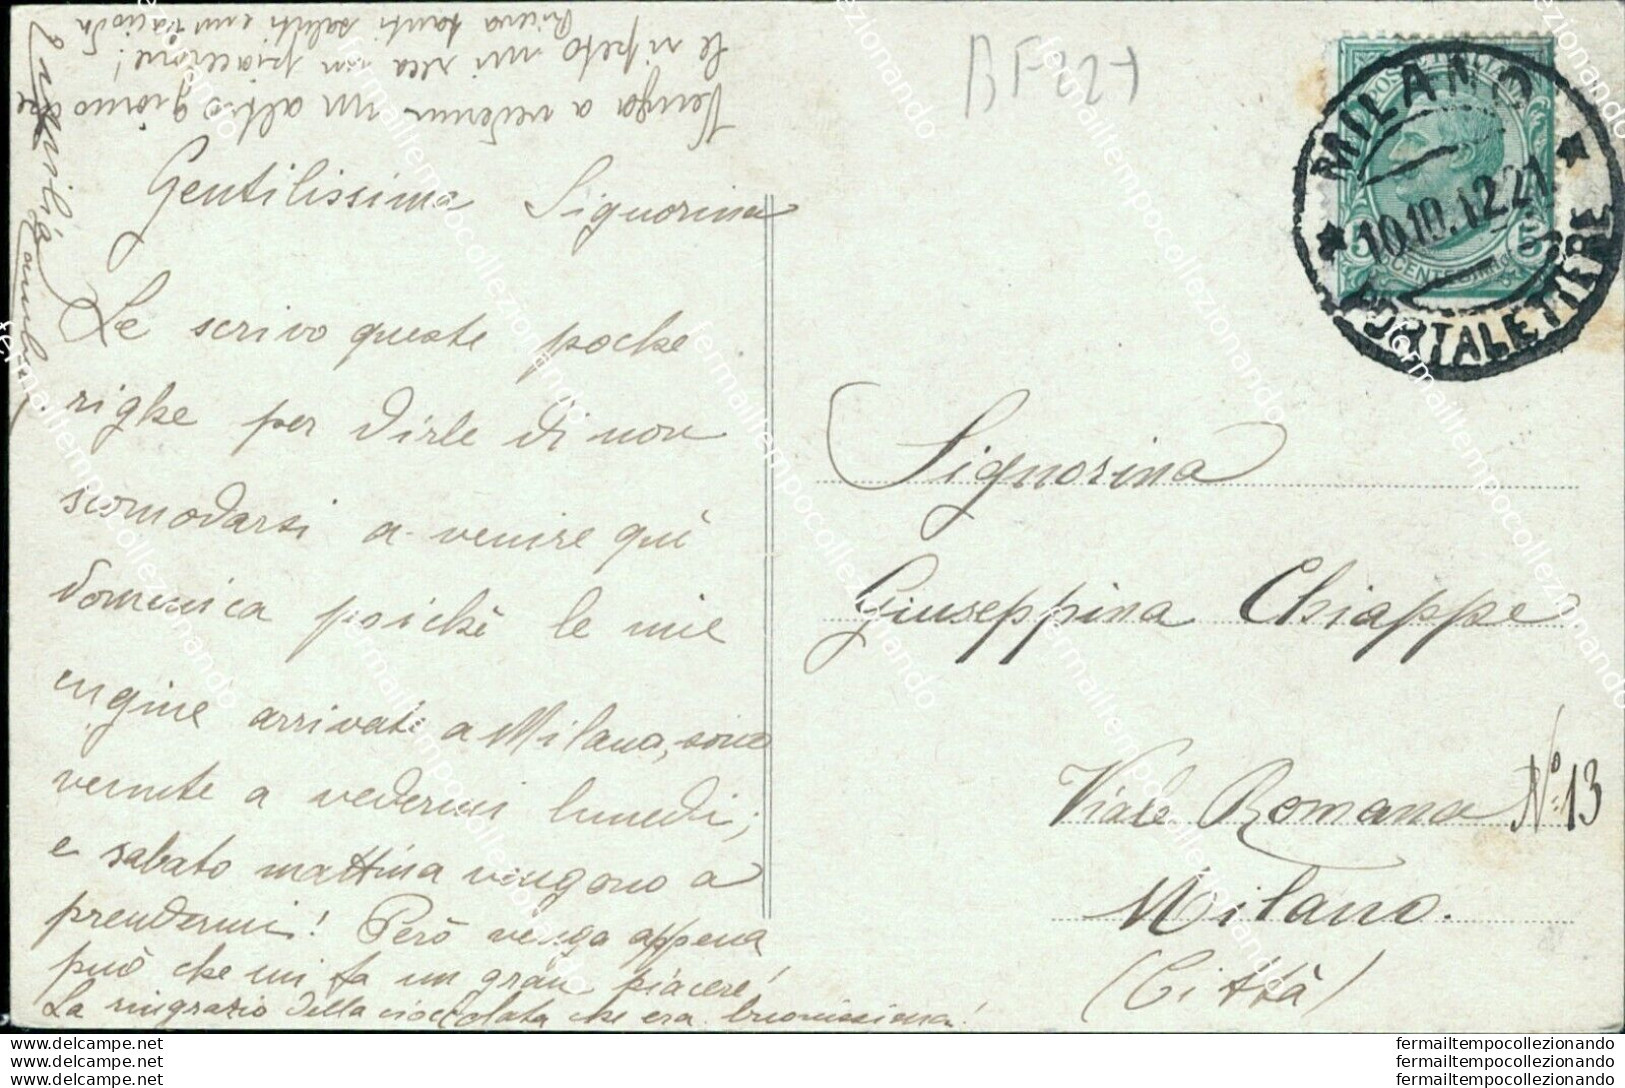 Gentilissima Signorina
Le scrivo queste poche
righe per dirle di non
scomodarsi a venire quì
domenica poichè le mie
cugine arrivate a Milano, sono
venute a vedermi lunedì;
e sabato mattina vengono a
prendermi! Però venga appena
può che mi fa un gran piacere!
La ringrazio della cioccolata che era buonissima!
Venga a vedermi un altro giorno che
le ripeto mi reca un piacione!
Riceva tanti saluti e un bacio da
BF227
POSTE ITALIANE
MILANO
10.10.12.21
PORTALETTERE
5 CENTESIMI 5
Signorina
Giuseppina Chiappe
Viale Romana No. 13
Milano.
(Città)
fermailtempocollezionando
www.delcampe.net fermailtempocollezionando
www.delcampe.net fermailtempocollezionando
www.delcampe.net fermailtempocollezionando